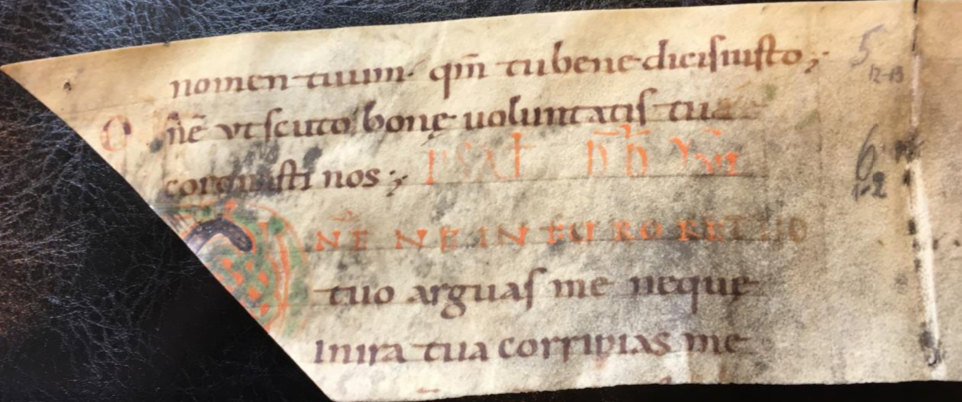 nomen tuum· qm̄ tu benedicis iusto;· 5 12-13
O nē vt scuto bonę uoluntatis tuae
coronasti nos;· PSAL DD VI 6 1-2
NE NE IN FURORE TUO
tuo arguas me neque
In ira tua corripias me